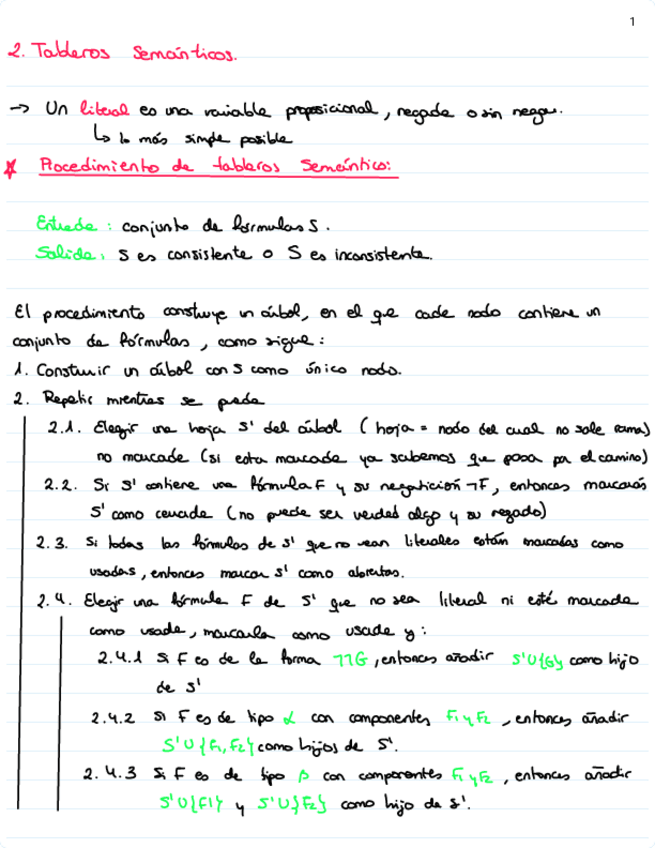 1
2. Tableros Semánticos.
→ Un literal es una variable proposicional, negada o sin negar.
↳ lo más simple posible
* Procedimiento de tableros Semántico:
Entrada: conjunto de fórmulas S.
Salida: S es consistente o S es inconsistente.
El procedimiento construye un árbol, en el que cada nodo contiene un
conjunto de fórmulas, como sigue:
1. Construir un árbol con S como único nodo.
2. Repetir mientras se pueda
2.1. Elegir una hoja S' del árbol (hoja = nodo del cual no sale rama)
no marcada (si esta marcada ya sabemos que pasa por el camino)
2.2. Si S' contiene una fórmula F y su negatición ¬F, entonces marcarás
S' como cerrada (no puede ser verdad algo y su negado)
2.3. Si todas las fórmulas de S' que no sean literales están marcadas como
usadas, entonces marcar S' como abiertas.
2.4. Elegir una fórmula F de S' que no sea literal ni esté marcada
como usada, marcarla como usada y:
2.4.1 Si F es de la forma ¬¬G, entonces añadir S'∪{G} como hijo
de S'
2.4.2 Si F es de tipo α con componentes F1 y F2, entonces añadir
S'∪{F1, F2} como hijos de S'.
2.4.3 Si F es de tipo β con componentes F1 y F2, entonces añadir
S'∪{F1} y S'∪{F2} como hijo de S'.